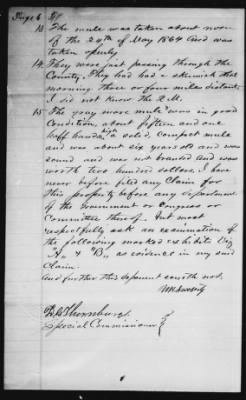 Page 6
13 The mule was taken about noon
of the 24th of May 1864 and was
taken openly
14 They were just passing through the
County. They had had a skirmish that
morning three or four miles distant.
I did not know the Q.M.
15 The gray mare mule was in good
Condition, about fifteen and one
half hands high a solid, compact mule
and was about six years old and was
sound and was not branded and was
worth two hundred dollars. I have
never before filed any Claim for
this property before any department
of the Government or Congress or
Committee thereof. But most
respectfully ask an examination of
the following marked exhibits Viz
"A" & "B" as evidence in my said
Claim.
And further this deponent saith not.
Special Commissioner